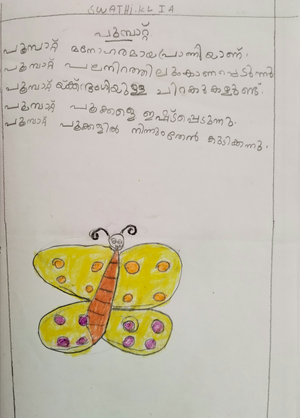 SWATHI.KL IA
പൂമ്പാറ്റ
പൂമ്പാറ്റ മനോഹരമായ പ്രാണിയാണ്.
പൂമ്പാറ്റ പലനിറത്തിലും കാണപ്പെടുന്നു
പൂമ്പാറ്റയ്ക്ക് ഭംഗിയുള്ള ചിറകുകളുണ്ട്.
പൂമ്പാറ്റ പൂക്കളെ ഇഷ്ടപ്പെടുന്നു.
പൂമ്പാറ്റ പൂക്കളിൽ നിന്നും തേൻ കുടിക്കുന്നു.